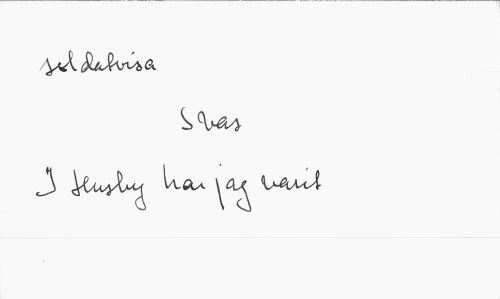 soldatvisa
Svas
I Huseby har jag varit